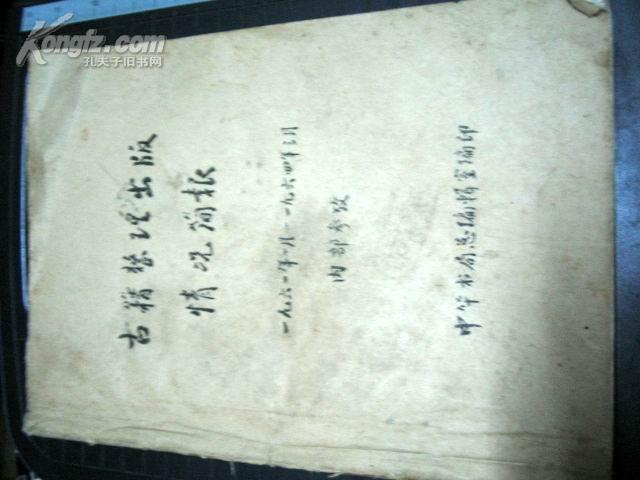 Kongfz.com
孔夫子旧书网
古籍整理出版
情况简报
一九六一年一月—一九六四年三月
内部参攷
中华书局总编辑室编印